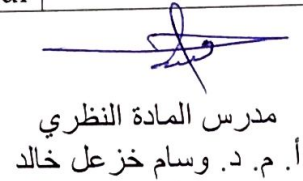 مدرس المادة النظري
أ. م. د. وسام خزعل خالد